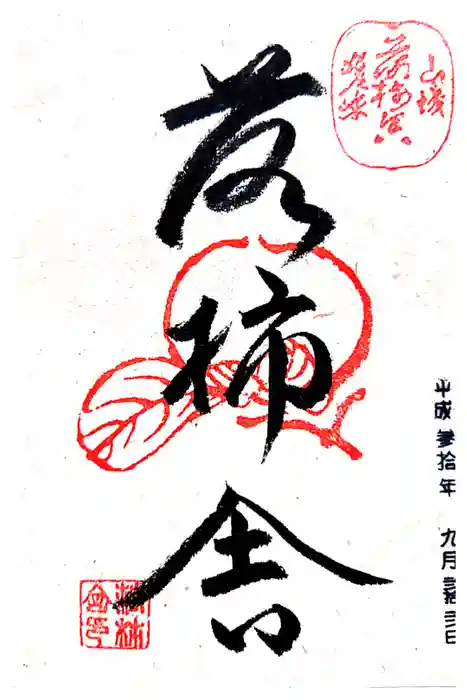 山城
落柿舎
嵯峨
平成参拾年 九月弐拾三日
落柿舎